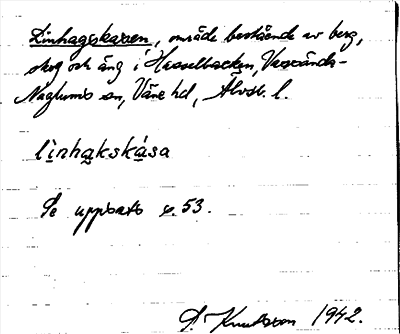 Linhagskasen, område bestående av berg,
skog och äng i Hasselbacken, Vassända-
Naglums sn, Väne hd, Älvsb. l.
lìnhakskása
Se uppsats s. 53.
Knutsson 1942.